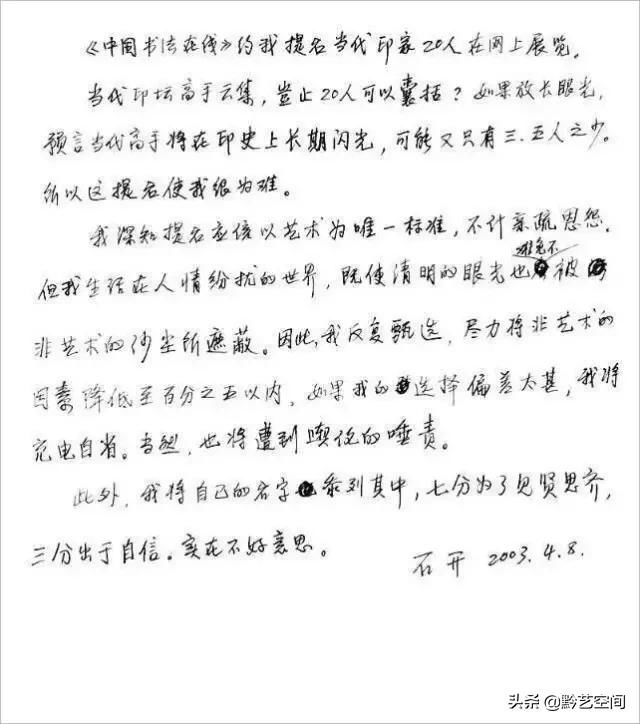 《中国书法在线》约我提名当代印家20人在网上展览。
当代印坛高手云集，岂止20人可以囊括？如果放长眼光，
预言当代高手将在印史上长期闪光，可能又只有三、五人之少。
所以这提名使我很为难。
我深知提名应该以艺术为唯一标准，不计亲疏恩怨。
但我生活在人情纷扰的世界，既使清明的眼光也难免不被
非艺术的沙尘所遮蔽。因此，我反复甄选，尽力将非艺术的
因素降低至百分之五以内，如果我的选择偏差太甚，我将
充电自省。当然，也将遭到舆论的唾责。
此外，我将自己的名字系列其中，七分为了见贤思齐，
三分出于自信。实在不好意思。
石开 2003.4.8.
头条 @黔艺空间